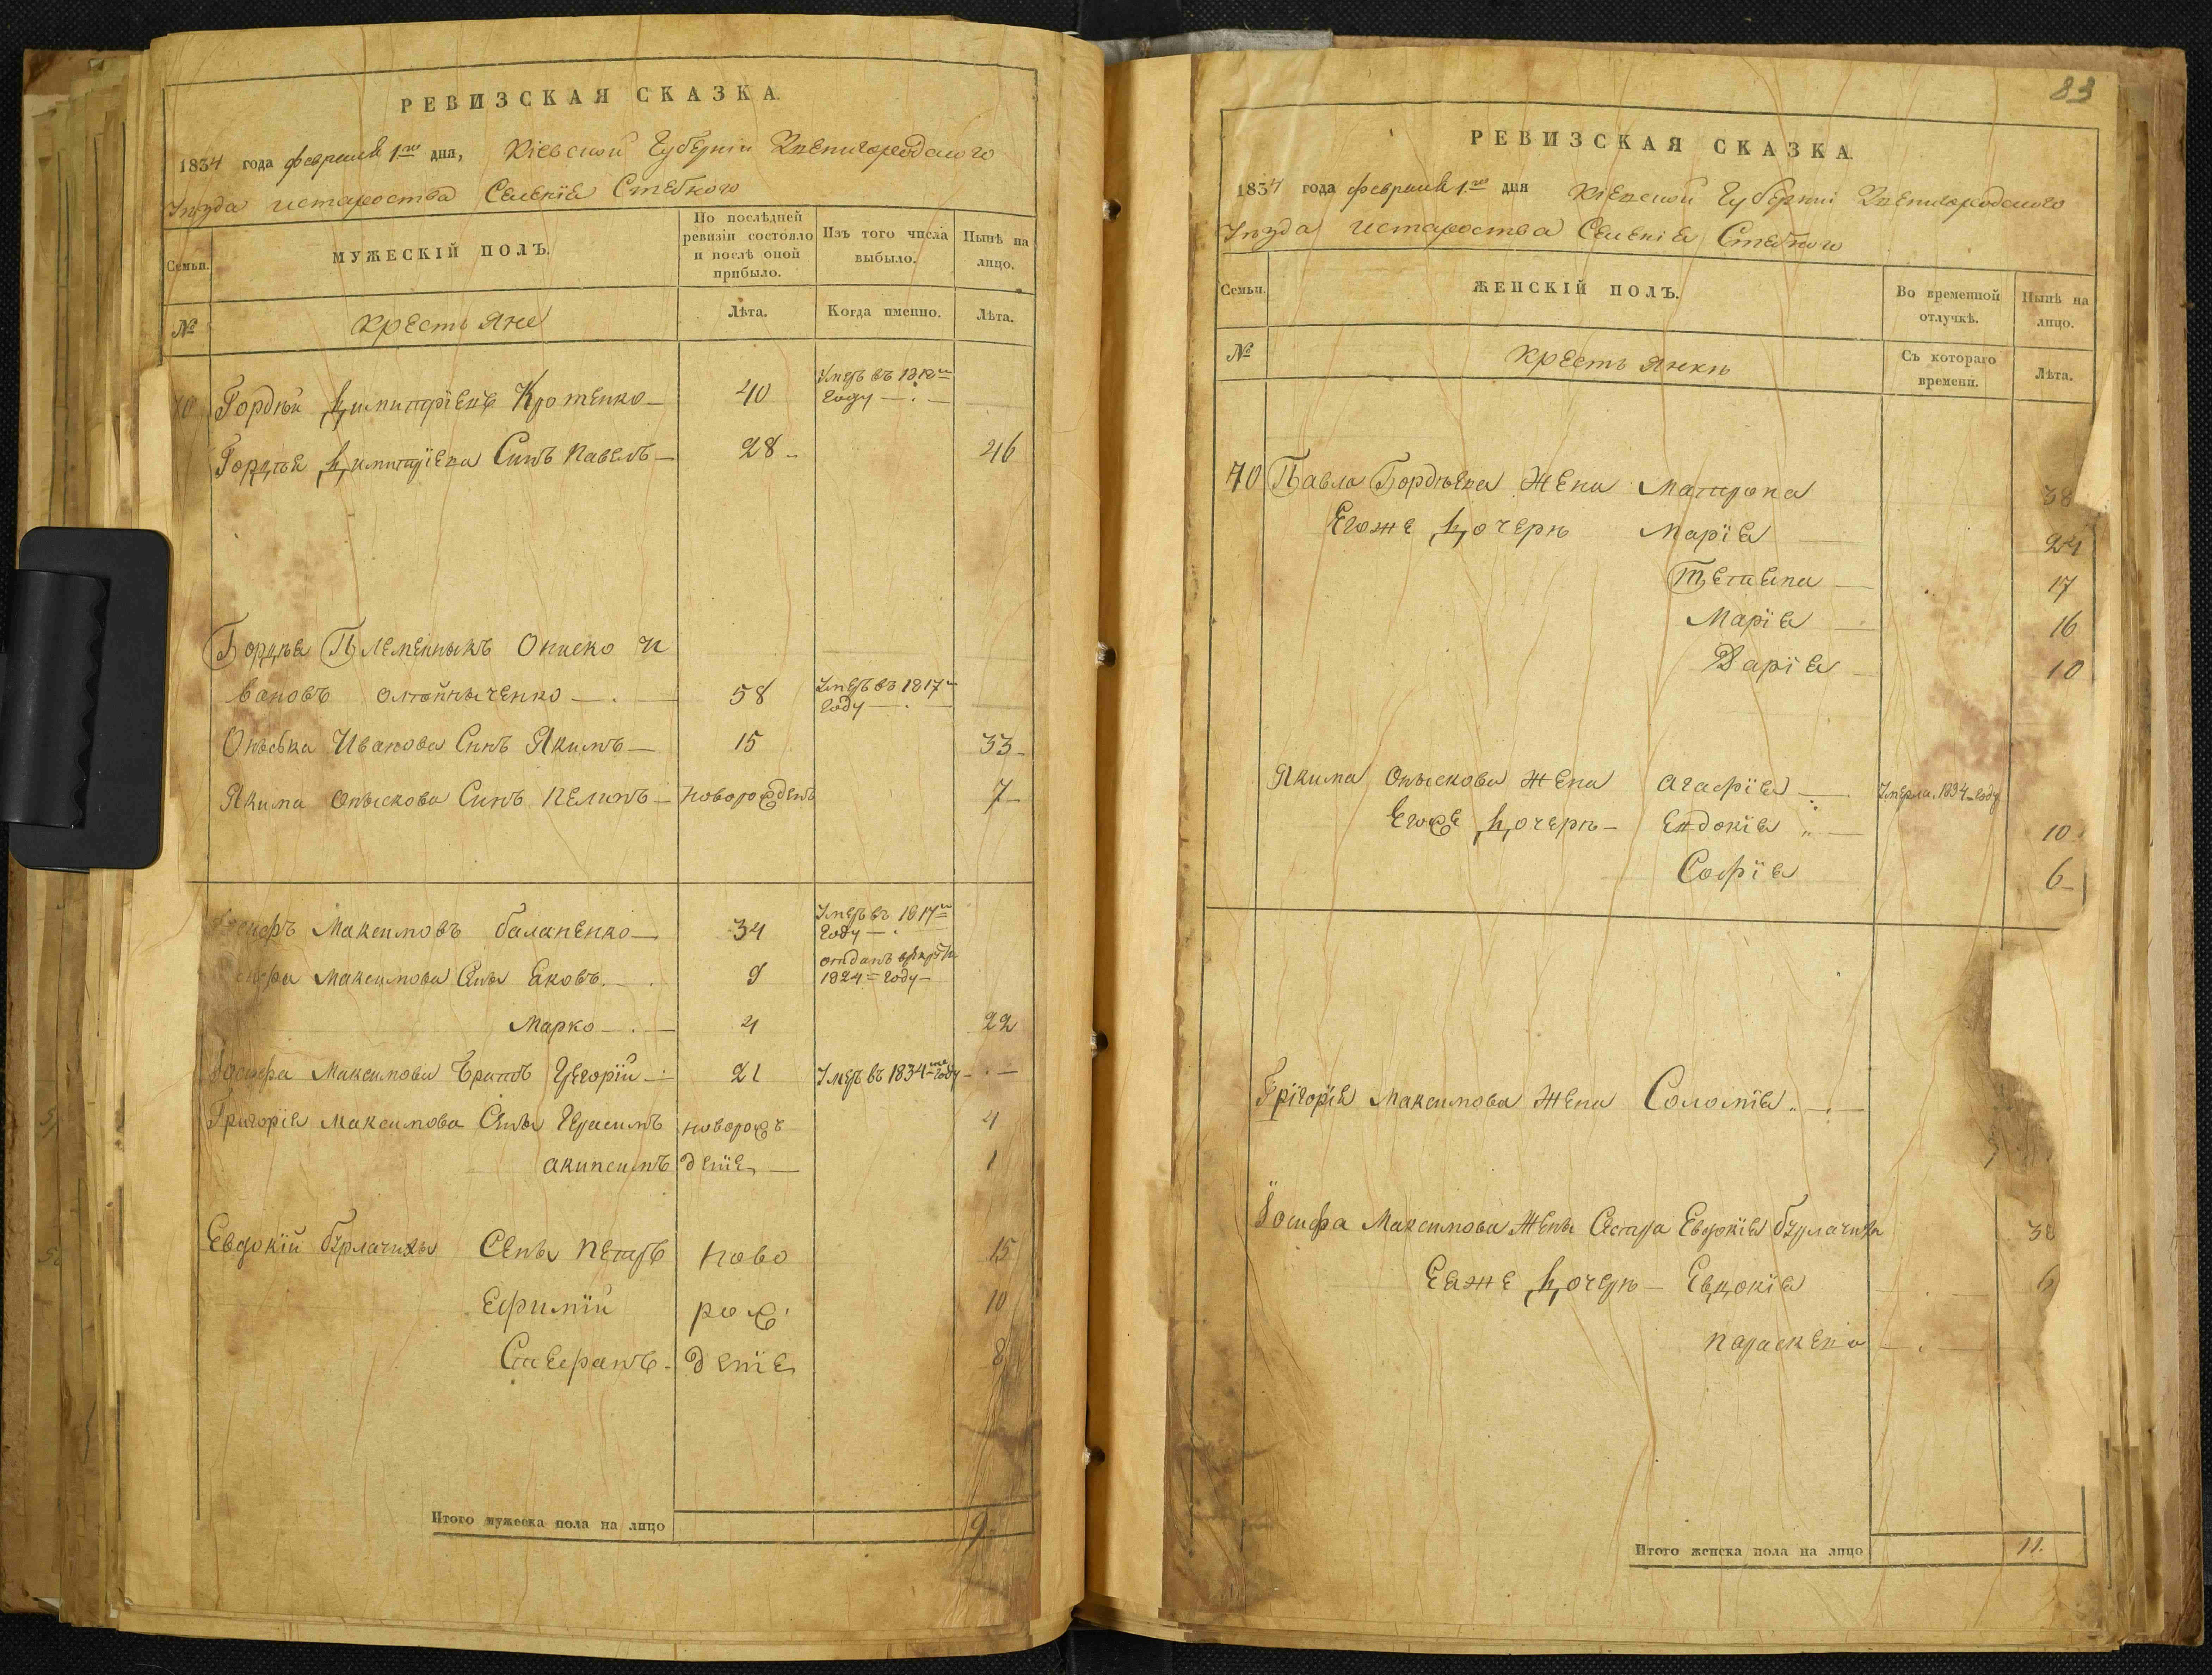 РЕВИЗСКАЯ СКАЗКА.
1834 года февраля 1го дня, Кіевской Губерніи Звенигородского
Уезда староства Селенія Стебного
Семьи.
МУЖЕСКІЙ ПОЛЪ.
По послѣдней ревизіи состояло и послѣ оной прибыло.
Изъ того числа выбыло.
Нынѣ на лицо.
№
крестьяне
Лѣта.
Когда именно.
Лѣта.
Гордѣй Димитріевъ 40 Умеръ въ 1818м
году
Гордѣя Димитріева Синъ Павелъ 28 46
Гордѣя Племенныкъ Ониско И
вановъ 58 Умеръ въ 1817м
году
Иванова Синъ Якимъ 15 33
Якима Оныскова Синъ новорожденъ 7
Максимовъ 34 Умеръ въ 1817м
году
Максимова Сны Яковъ 9
1824 году
Марко 4 22
Іосифа Максимова Братъ Григорій 21 Умеръ въ 1834м году
Григорія Максимова Сны Герасимъ новорож 4
деніе 1
Евдокій Бурлачихы Сены Петръ ново 15
Ефимій рож 10
деніе 8
Итого мужеска пола на лицо 9
83
РЕВИЗСКАЯ СКАЗКА.
1834 года февраля 1го дня Кіевской Губерніи Звенигородского
Уезда староства Селенія Стебного
Семьи.
ЖЕНСКІЙ ПОЛЪ.
Во временной отлучкѣ.
Нынѣ на лицо.
№
крестьянки
Съ котораго времени.
Лѣта.
70 Павла Гордѣева Жена Матрона 38
Егоже Дочери Марія 24
Тетяна 17
Марія 16
Дарія 10
Якима Оныскова Жена Агафія Умерла 1834 году
Егоже Дочери Евдокія 10
Софія 6
Григорія Максимова Жена Соломія
Іосифа Максимова Жены Сестра Евдокія Бурлачиха 38
Еяже Дочери Евдокія 6
Параскева
Итого женска пола на лицо 11.